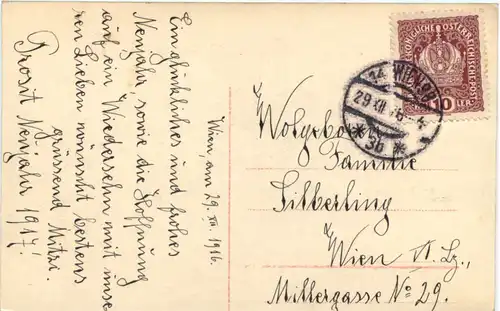 Wien, am 29. XII. 1916.
Ein glückliches und frohes
Neujahr, sowie die Hoffnung
auf ein Wiedersehn mit unse
ren Lieben wünscht bestens
grüssend Mitzi.
Prosit Neujahr 1917!
KAISERLICHE KÖNIGLICHE ÖSTERREICHISCHE POST
10 HELLER
14 WIEN
29 XII 16 4
* 3b *
Wolgeboren
Familie
Silberling
Wien VI. Bz.,
Millergasse No 29.